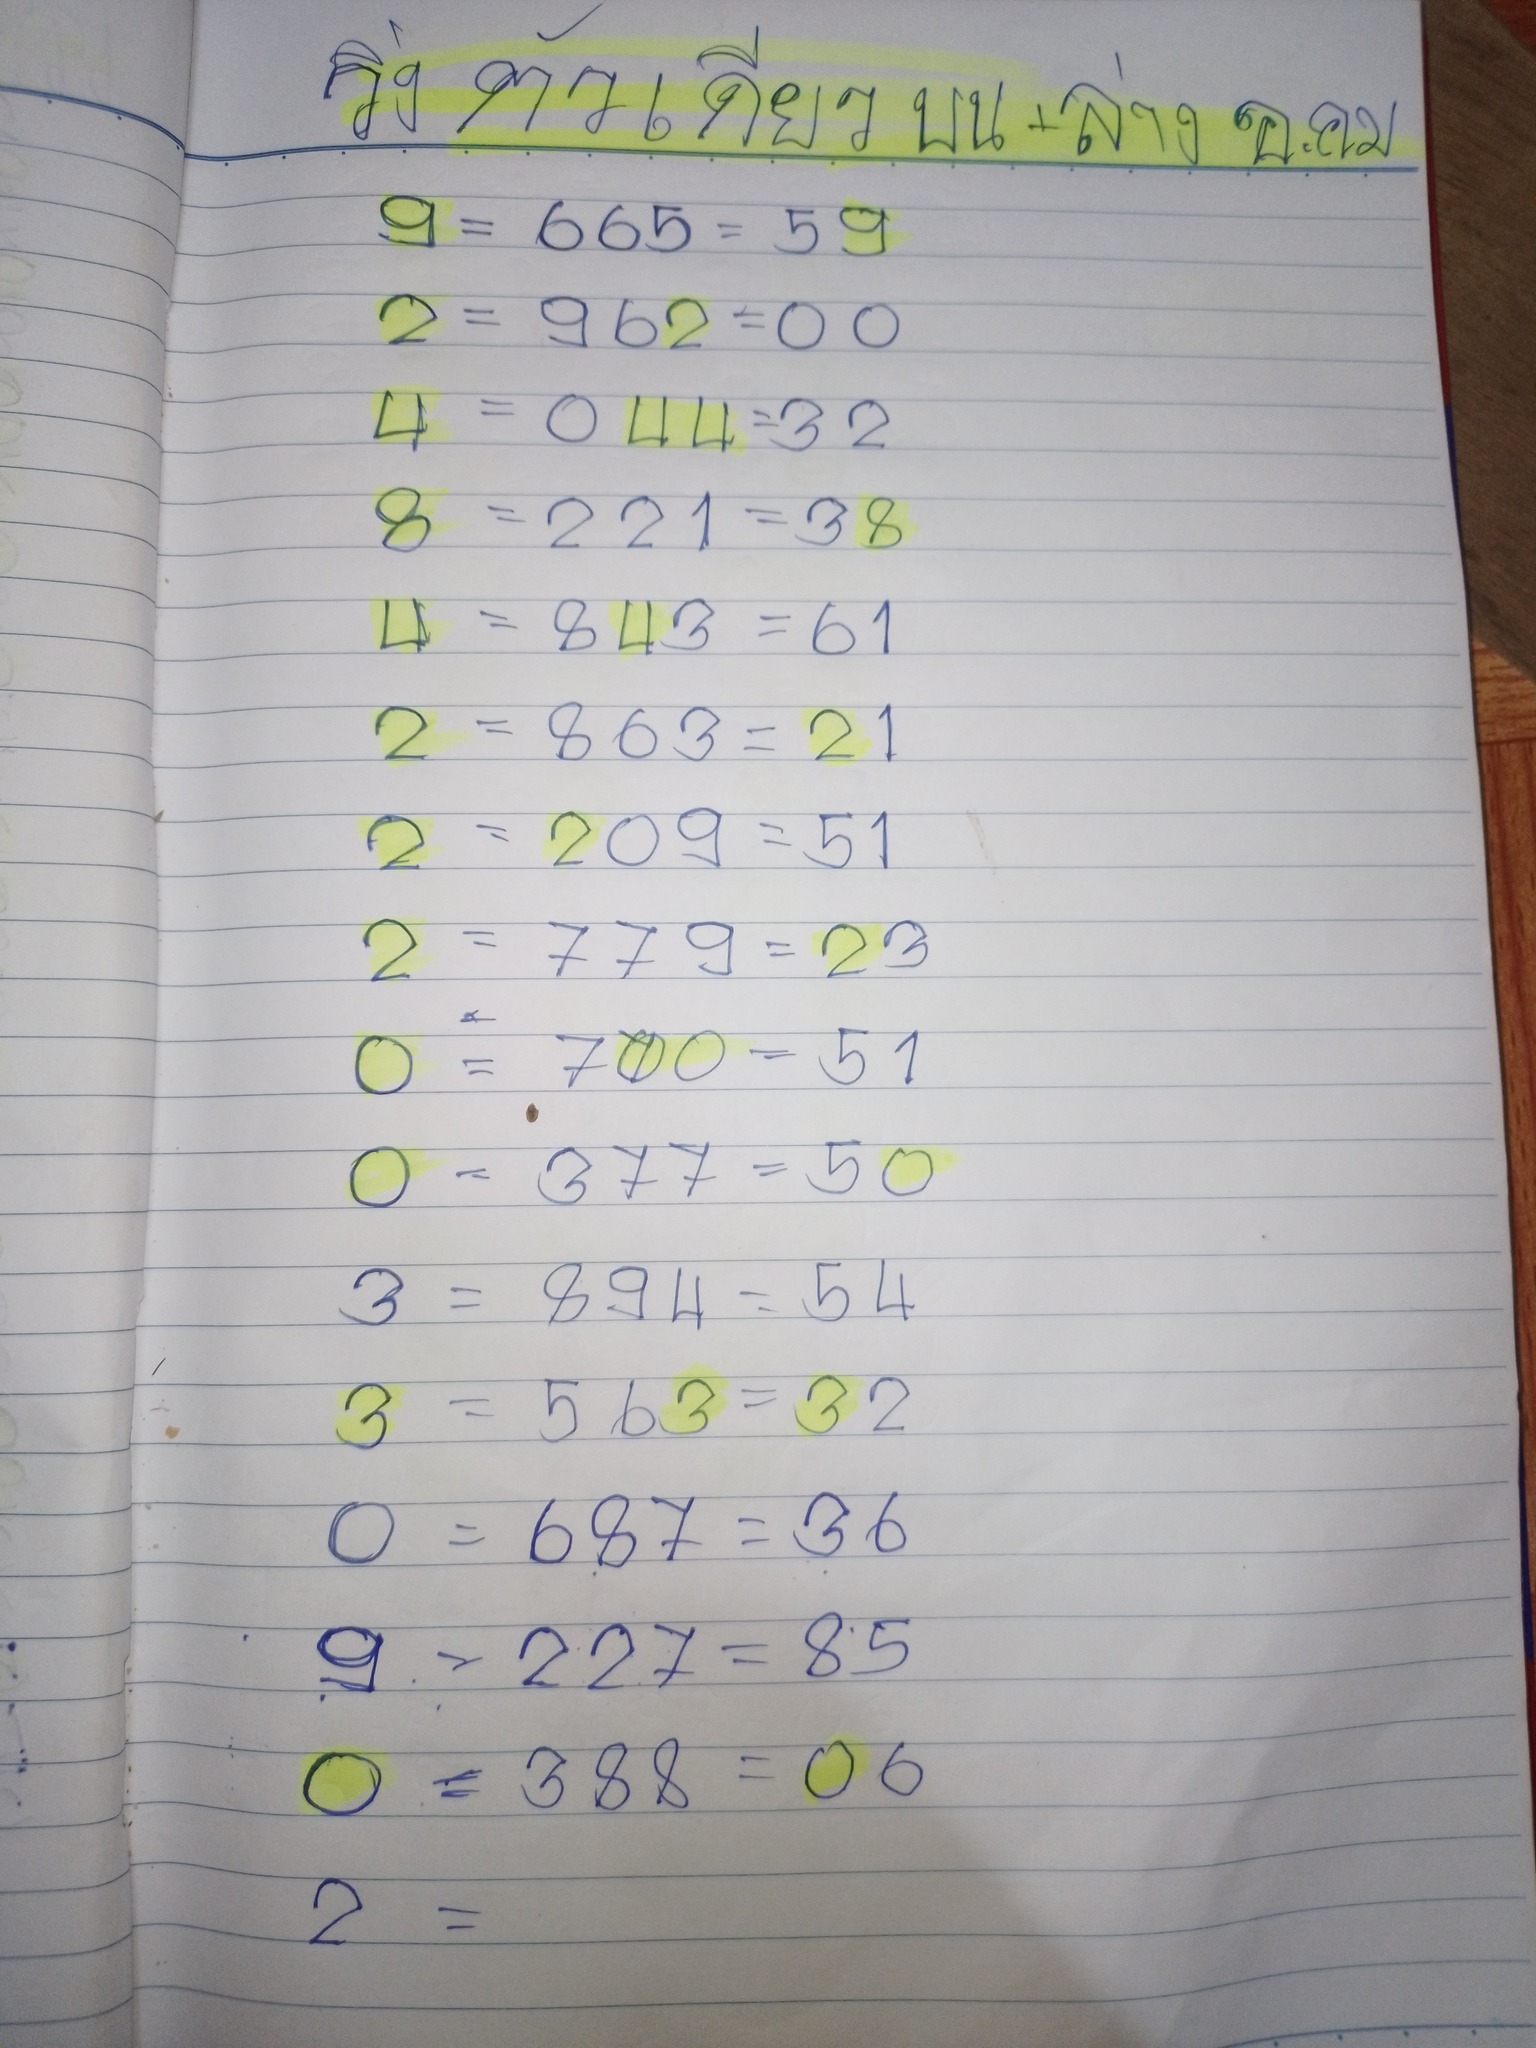 วิ่ง ตัวเดียว บน+ล่าง อ.คม
9 = 665 = 59
2 = 962 = 00
4 = 044 = 32
8 = 221 = 38
4 = 843 = 61
2 = 863 = 21
2 = 209 = 51
2 = 779 = 23
0 = 700 = 51
0 = 377 = 50
3 = 894 = 54
3 = 563 = 32
0 = 687 = 36
9 = 227 = 85
0 = 388 = 06
2 =